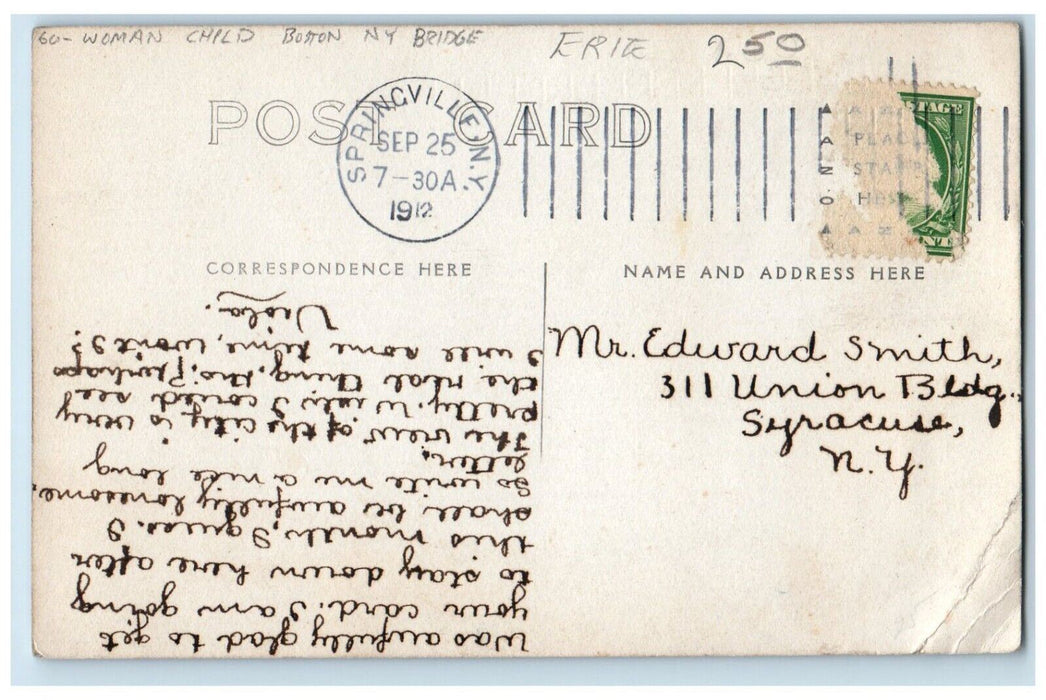 60- WOMAN CHPLD BOTTON NY BRIDGE
ERIE 2 50
POST CARD
SPRINGVILLE N.Y.
SEP 25
7-30A.
1912
PLACE
STAMP
HERE
CORRESPONDENCE HERE
NAME AND ADDRESS HERE
Mr. Edward Smith,
311 Union Bldg.,
Syracuse,
N.Y.
Was awfully glad to get
your card. I am going
to stay down here after
this month, I guess. I
shall be awfully lonesome.
So write me a nice long
letter.
The view of the city is very
pretty. Wish I could see
the real thing, tho. Perhaps
I will some time, won't I?
Viola.